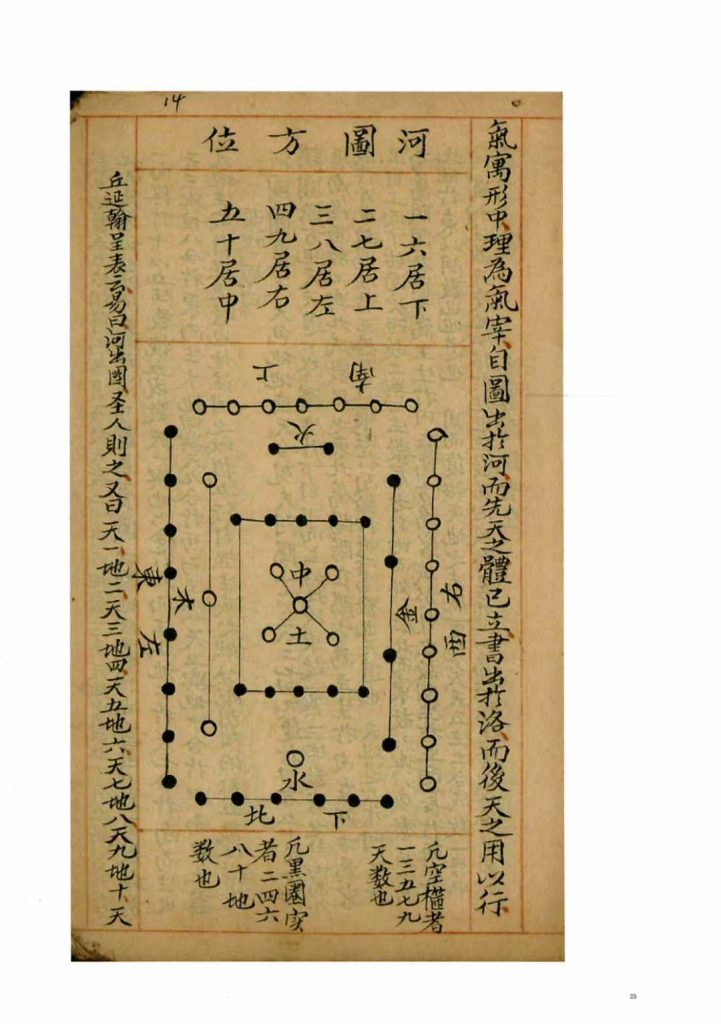 14
氣寓形中理為氣宰自圖出於河而先天之體已立書出於洛而後天之用以行
河圖方位
一六居下
二七居上
三八居左
四九居右
五十居中
南
上
火
右
西
金
中
土
木
東
左
水
北
下
凣空橫者
一三五七九
天數也
凣黑圈实
者二四六
八十地
数也
丘延翰呈表云易曰河出圖圣人則之又曰天一地二天三地四天五地六天七地八天九地十天
25